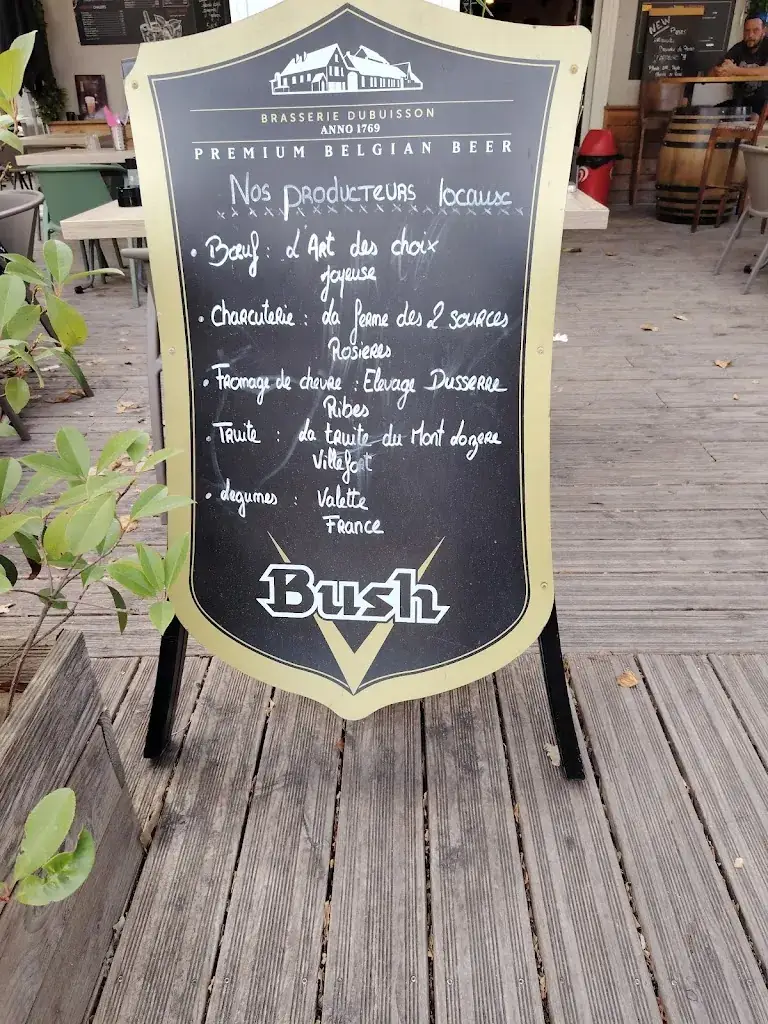 BRASSERIE DUBUISSON
ANNO 1769
PREMIUM BELGIAN BEER
Nos PRODUCTEURS locaux
• Bœuf : d'Art des choix
Joyeuse
• Charcuterie : La ferme des 2 sources
Rosieres
• Fromage de chevre : Elevage Dusserre
Ribes
• Truite : La truite du Mont Lozere
Villefort
• Legumes : Valette
France
Bush
NEW